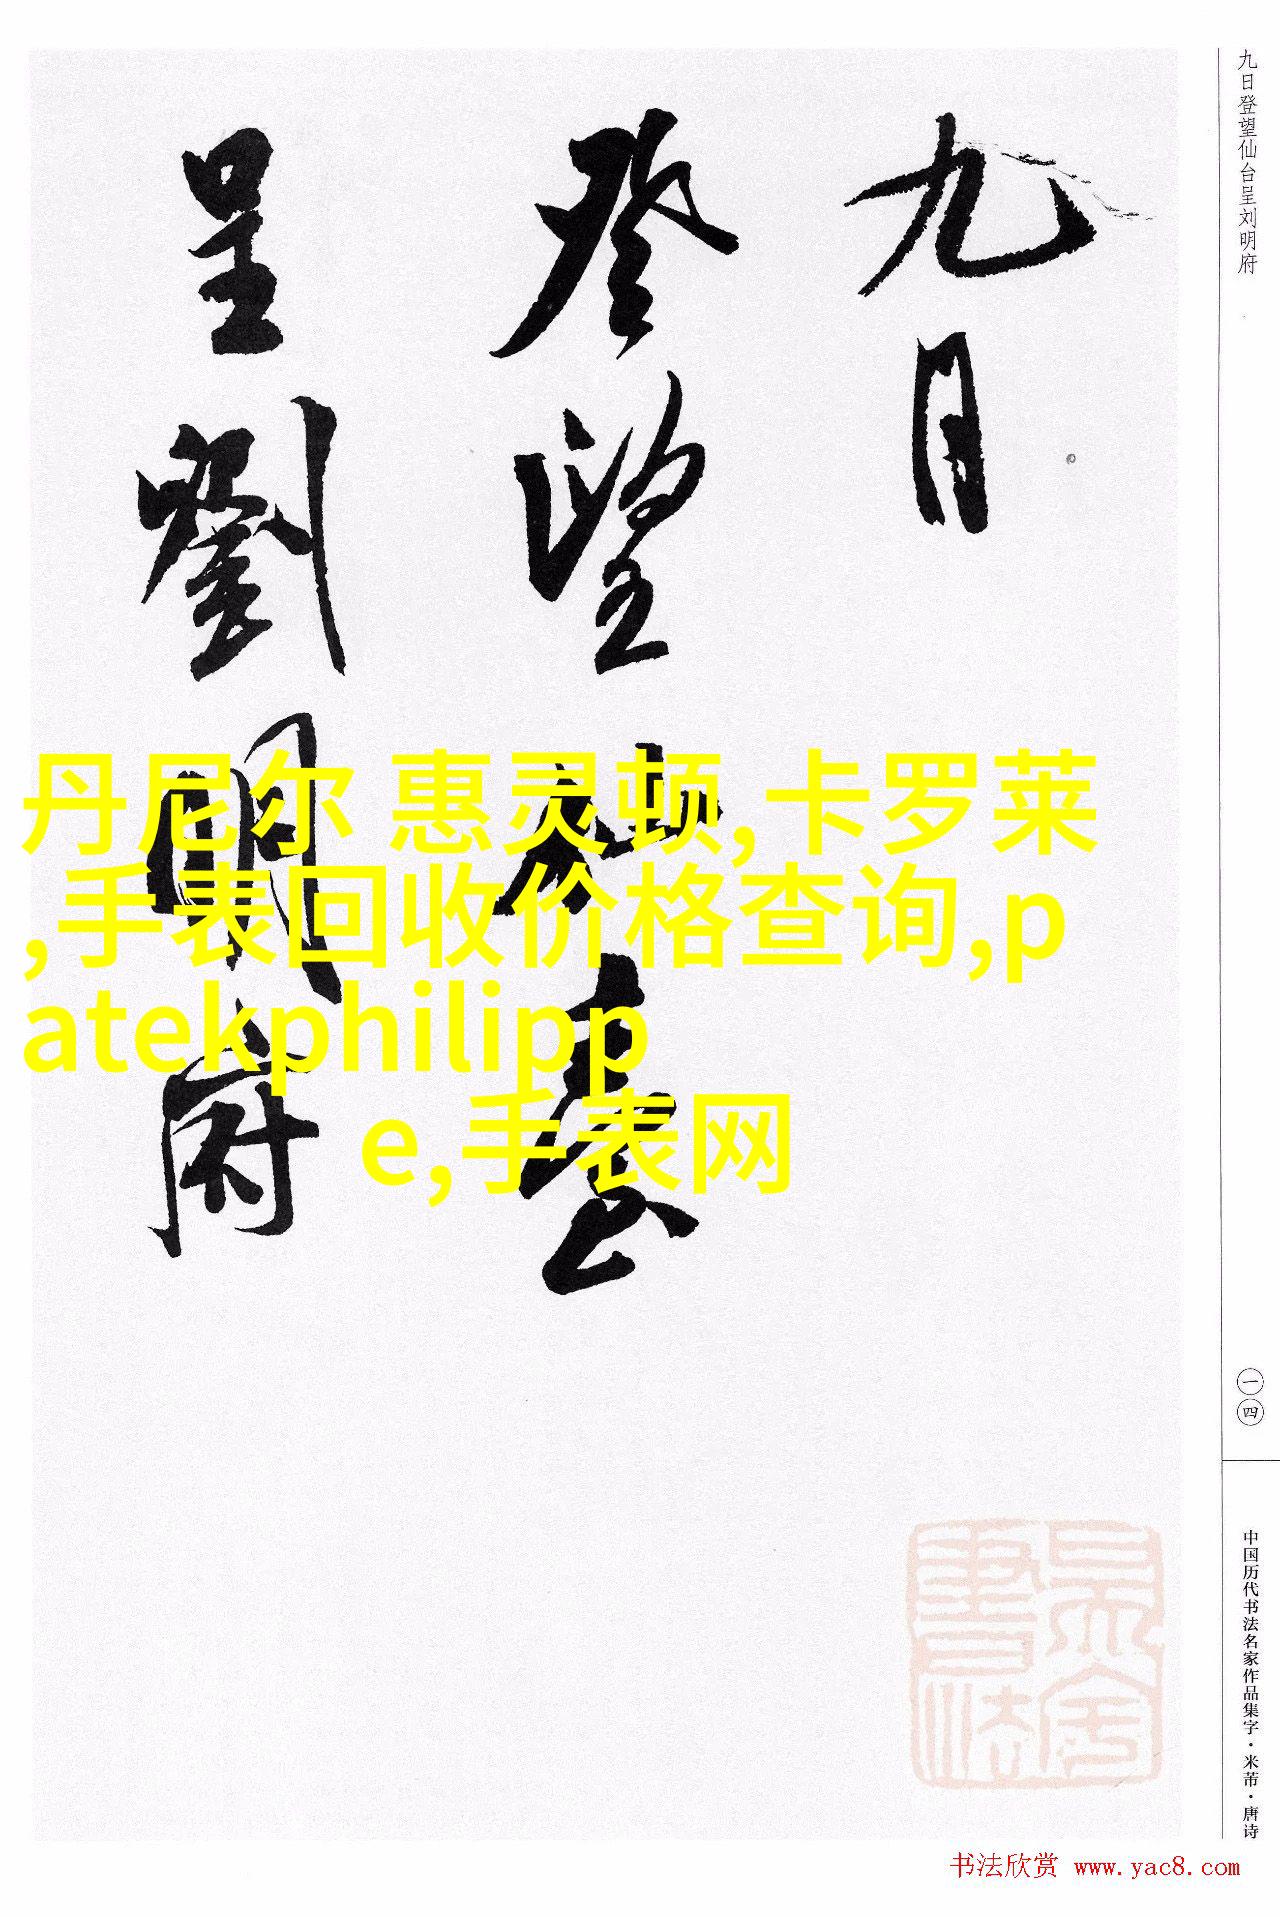 九日
登望仙臺
呈劉明府
丹尼尔 惠灵顿,卡罗莱
,手表回收价格查询,p
atekphilipp
e,手表网
九日登望仙台呈刘明府
一四
中国历代书法名家作品集字·米芾·唐诗
书法欣赏 www.yac8.com